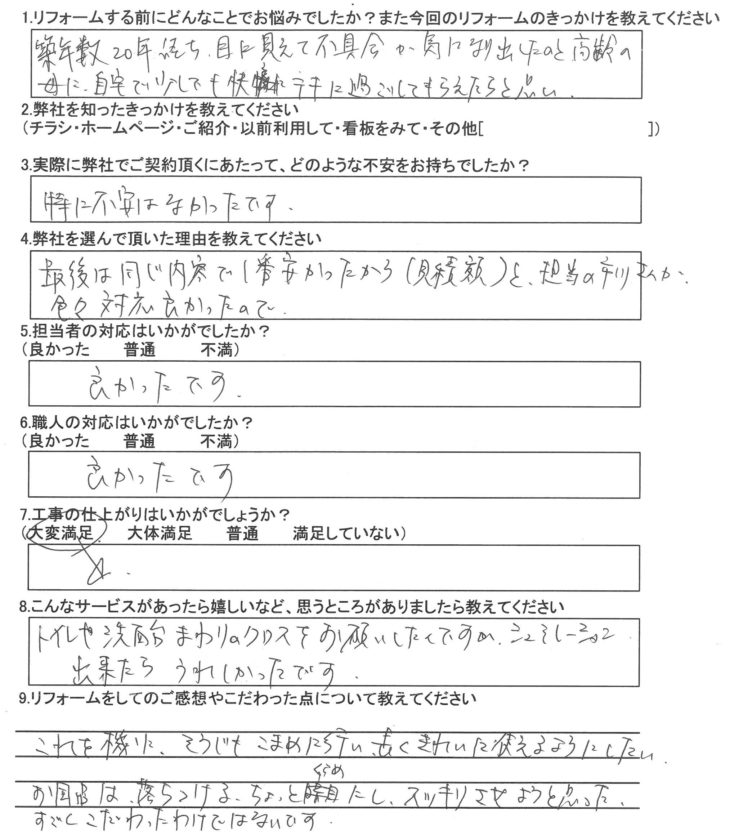 1.リフォームする前にどんなことでお悩みでしたか？また今回のリフォームのきっかけを教えてください
築年数20年経ち、目に見えて不具合が気になり出したのと高齢の
母に、自宅で少しでも快適にステキに過ごしてもらえたらと思い、
2.弊社を知ったきっかけを教えてください
（チラシ・ホームページ・ご紹介・以前利用して・看板をみて・その他[ ]）
3.実際に弊社でご契約頂くにあたって、どのような不安をお持ちでしたか？
特に不安はなかったです.
4.弊社を選んで頂いた理由を教えてください
最後は同じ内容で1番安かったから(見積額)と、担当の さんが、
色々対応良かったので.
5.担当者の対応はいかがでしたか？
（良かった 普通 不満）
良かったです.
6.職人の対応はいかがでしたか？
（良かった 普通 不満）
良かったです
7.工事の仕上がりはいかがでしょうか？
（大変満足 大体満足 普通 満足していない）
8.こんなサービスがあったら嬉しいなど、思うところがありましたら教えてください
トイレや洗面台まわりのクロスをお願いしたくですが、シュミレーション
出来たらうれしかったです.
9.リフォームをしてのご感想やこだわった点について教えてください
これを機に、そうじもこまめに行い、古くきれいに使えるようにしたい.
お風呂は、落ちつける、ちょっと暗めにし、スッキリさせようと思った.
すごくこだわったわけではないです.